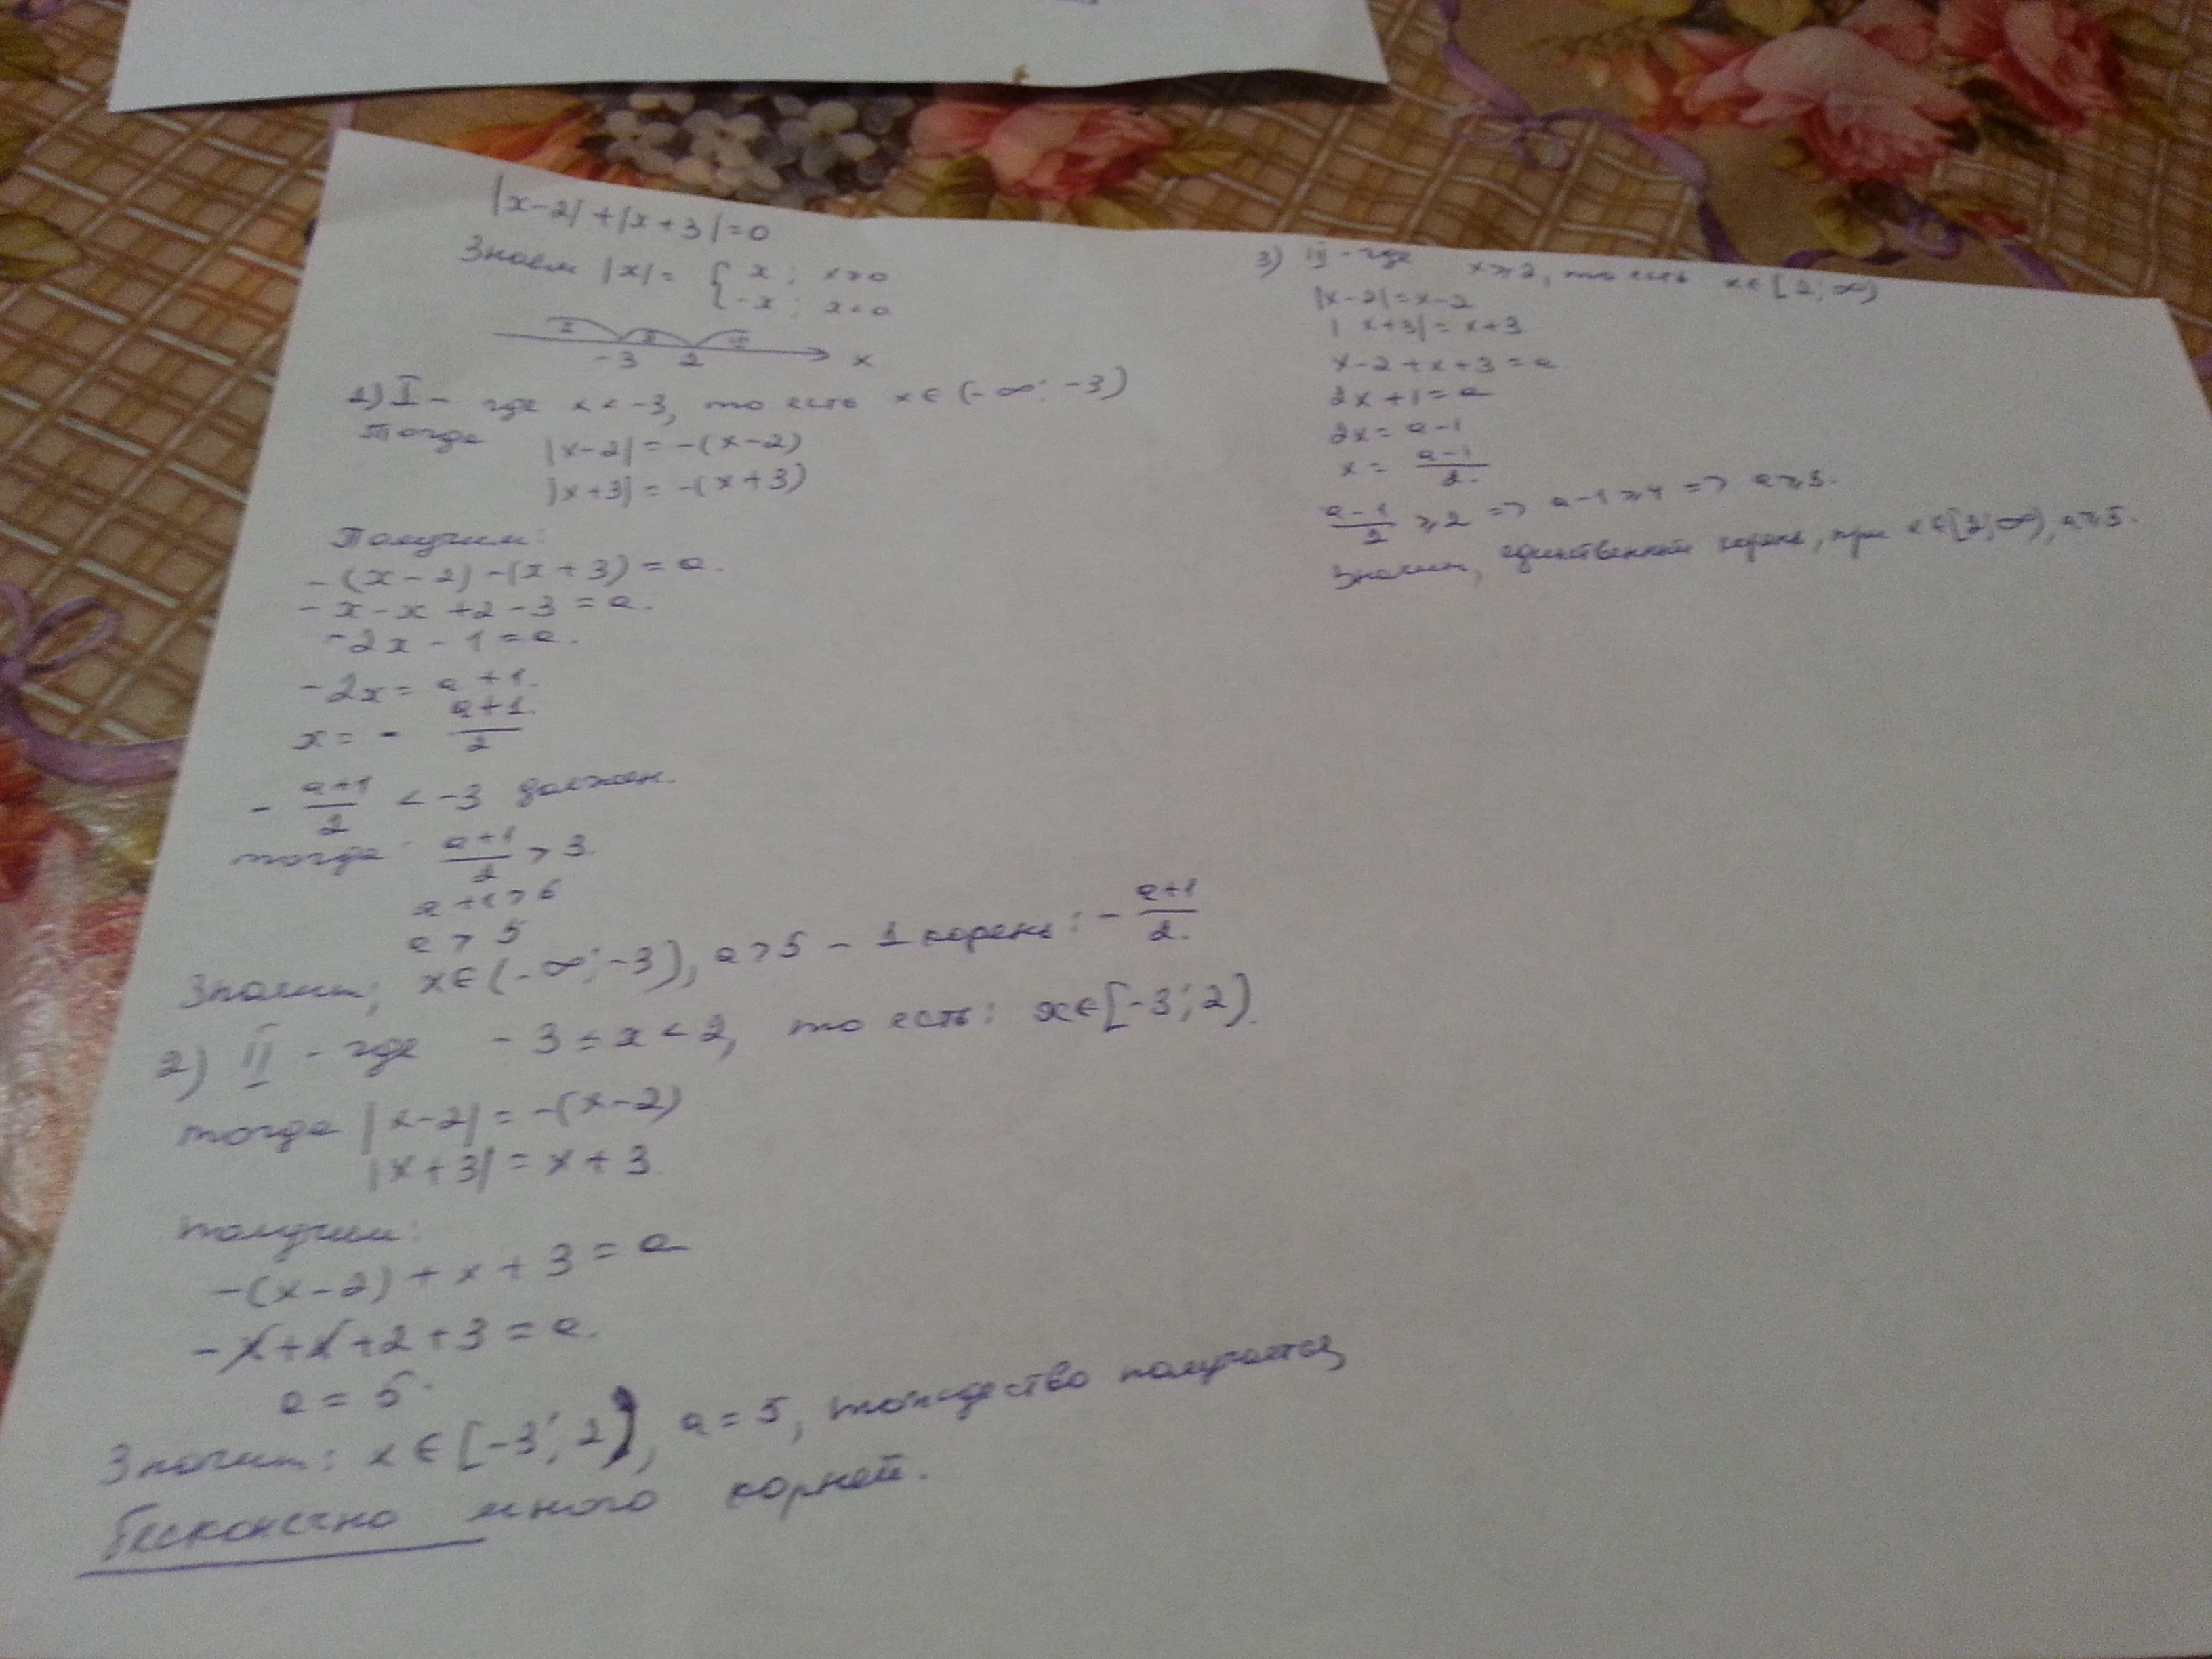 |x-2|+|x+3|=0
Знаем |x|= { x; x>0
-x; x<0
I II III
-3 2 x
1) I - где x<-3, то есть x∈(-∞;-3)
Тогда |x-2|=-(x-2)
|x+3|=-(x+3)
Получим:
-(x-2)-(x+3)=a.
-x-x+2-3=a.
-2x-1=a.
-2x=a+1.
x=- (a+1)/2
- (a+1)/2 < -3 должен.
тогда: (a+1)/2 > 3
a+1>6
a>5
Значит, x∈(-∞;-3), a>5 - 1 корень: - (a+1)/2.
2) II - где -3≤x<2, то есть: x∈[-3;2).
тогда |x-2|=-(x-2)
|x+3|=x+3.
получим:
-(x-2)+x+3=a
-x+x+2+3=a.
a=5.
Значит: x∈[-3;2), a=5, тождество получается,
бесконечно много корней.
3) III - где x≥2, то есть x∈[2;∞)
|x-2|=x-2
|x+3|=x+3
x-2+x+3=a
2x+1=a
2x=a-1
x= (a-1)/2.
(a-1)/2 ≥2 => a-1≥4 => a≥5.
Значит, единственный корень, при x∈[2;∞), a≥5.